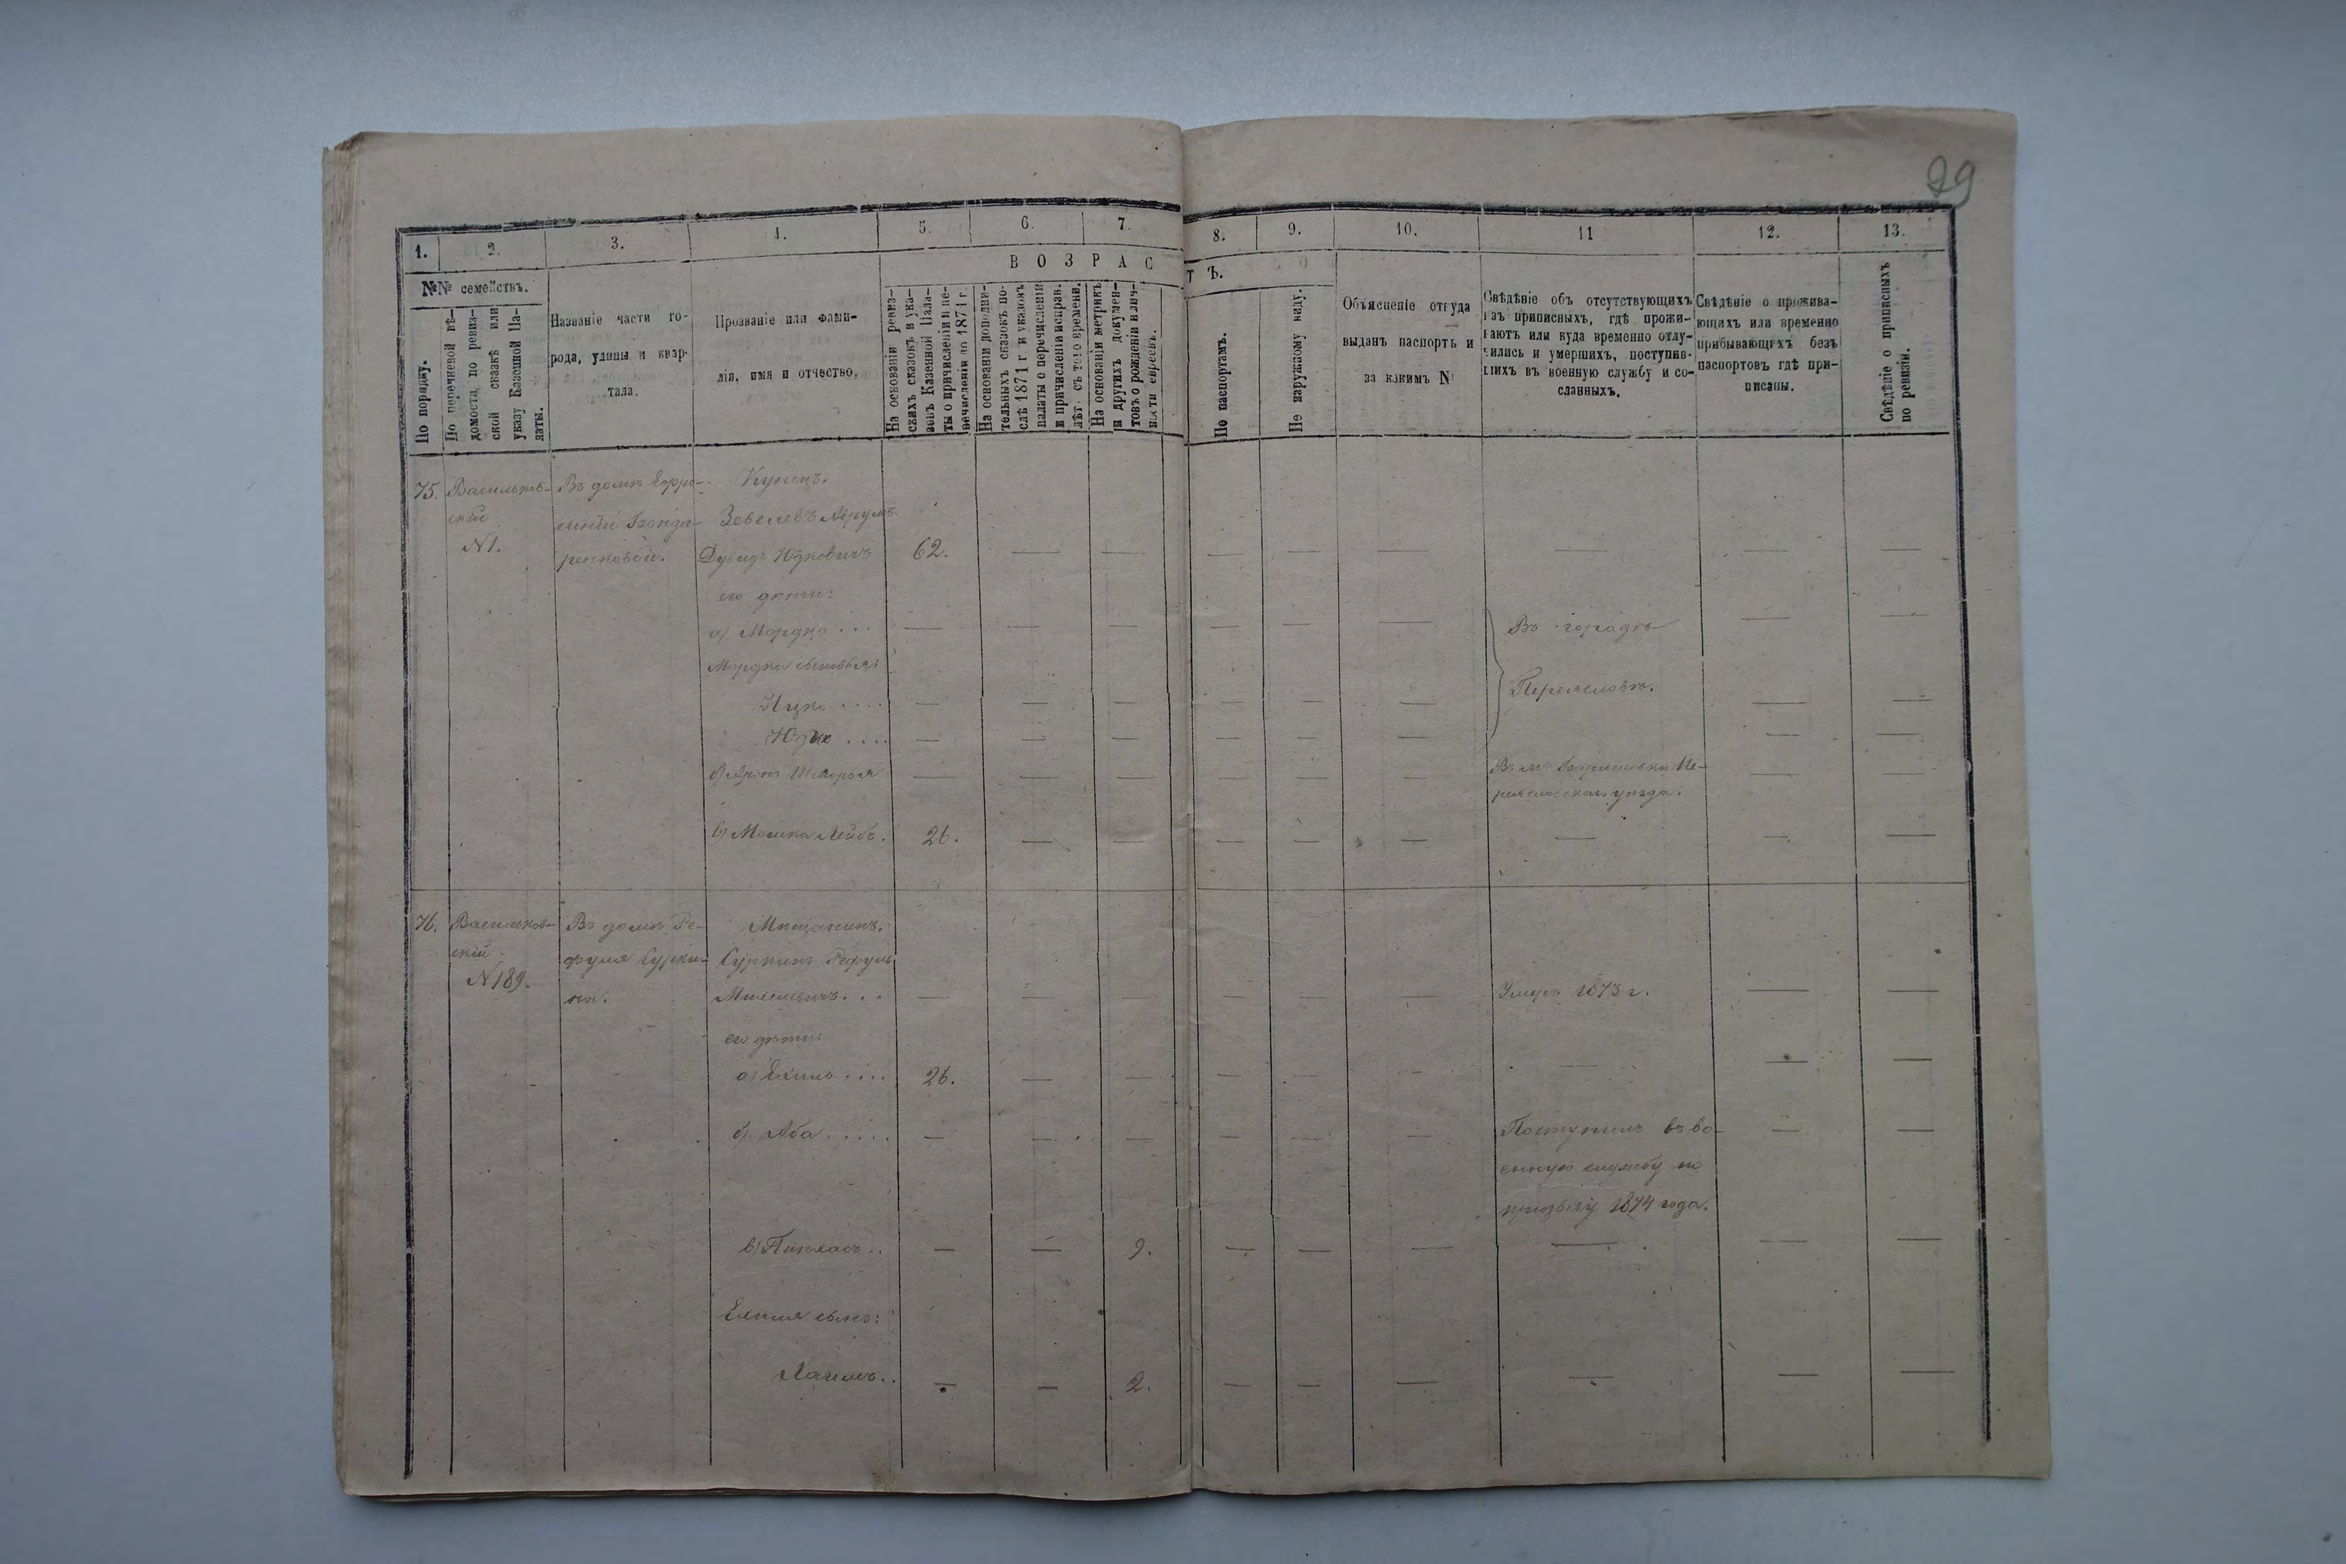 29
1.
2.
3.
4.
5.
6.
7.
8.
9.
10.
11
12.
13.
ВОЗРАСТЪ.
№№ семействъ.
По порядку.
По перечневой вѣ-
домости, по ревиз-
ской сказкѣ или
указу Казенной Па-
латы.
Названіе части го-
рода, улицы и квар-
тала.
Прозваніе или фами-
лія, имя и отчество.
На основаніи ревиз-
скихъ сказокъ и ука-
зовъ Казенной Пала-
ты о причисленіи и пе-
речисленіи до 1871 г.
На основаніи дополни-
тельныхъ сказокъ по-
слѣ 1871 г. и указовъ
палаты о перечисленіи
и причисленіи исправ.
лѣт. съ того времени.
На основаніи метрикъ
и другихъ докумен-
товъ о рожденіи и лич-
ности евреевъ.
По паспортамъ.
По наружному виду.
Объясненіе откуда
выданъ паспортъ и
за какимъ №
Свѣдѣніе объ отсутствующихъ
изъ приписныхъ, гдѣ прожи-
ваютъ или куда временно отлу-
чились и умершихъ, поступив-
шихъ въ военную службу и со-
сланныхъ.
Свѣдѣніе о прожива-
ющихъ или временно
прибывающихъ безъ
паспортовъ гдѣ при-
писаны.
Свѣдѣніе о приписныхъ
по ревизіи.
75.
Васильков-
скій
№1.
Въ домѣ
ренковой.
Купецъ.
Зевелевъ Аврумъ
Дувидъ Юдковичъ
62.
его дѣти:
а) Мордко . . .
Мордка сыновья:
Ицко . . . .
Юдко . . . .
Въ городѣ
Переяславѣ.
б) Аронъ
Въ м. Пе-
реяславскаго уѣзда.
в) Мошка Лейбъ.
26.
76.
Васильков-
скій
№189.
Въ домѣ Ре-
фуля Сурки-
на.
Мѣщанинъ.
Суркинъ Рефуль
. . .
Умеръ 1873 г.
его дѣти:
а) . . . .
26.
б) Аба . . . . .
Поступилъ въ во-
енную службу по
призыву 1874 года.
в) Пинхасъ . .
9.
сынъ:
Хаимъ . .
2.